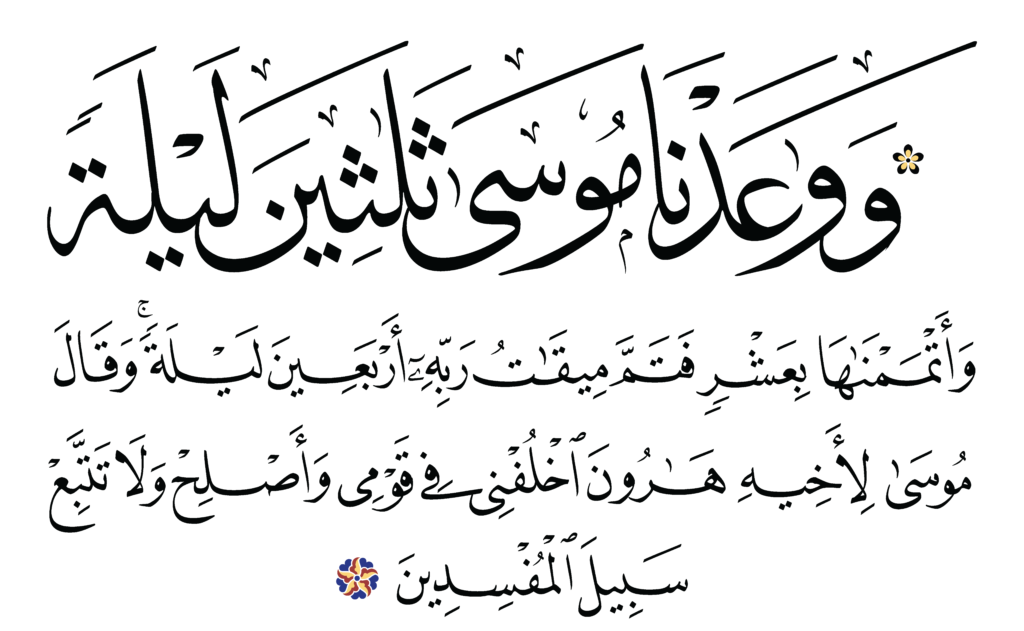 وَوَٰعَدْنَا مُوسَىٰ ثَلَٰثِينَ لَيْلَةً
وَأَتْمَمْنَٰهَا بِعَشْرٍ فَتَمَّ مِيقَٰتُ رَبِّهِۦٓ أَرْبَعِينَ لَيْلَةً ۚ وَقَالَ
مُوسَىٰ لِأَخِيهِ هَٰرُونَ ٱخْلُفْنِى فِى قَوْمِى وَأَصْلِحْ وَلَا تَتَّبِعْ
سَبِيلَ ٱلْمُفْسِدِينَ